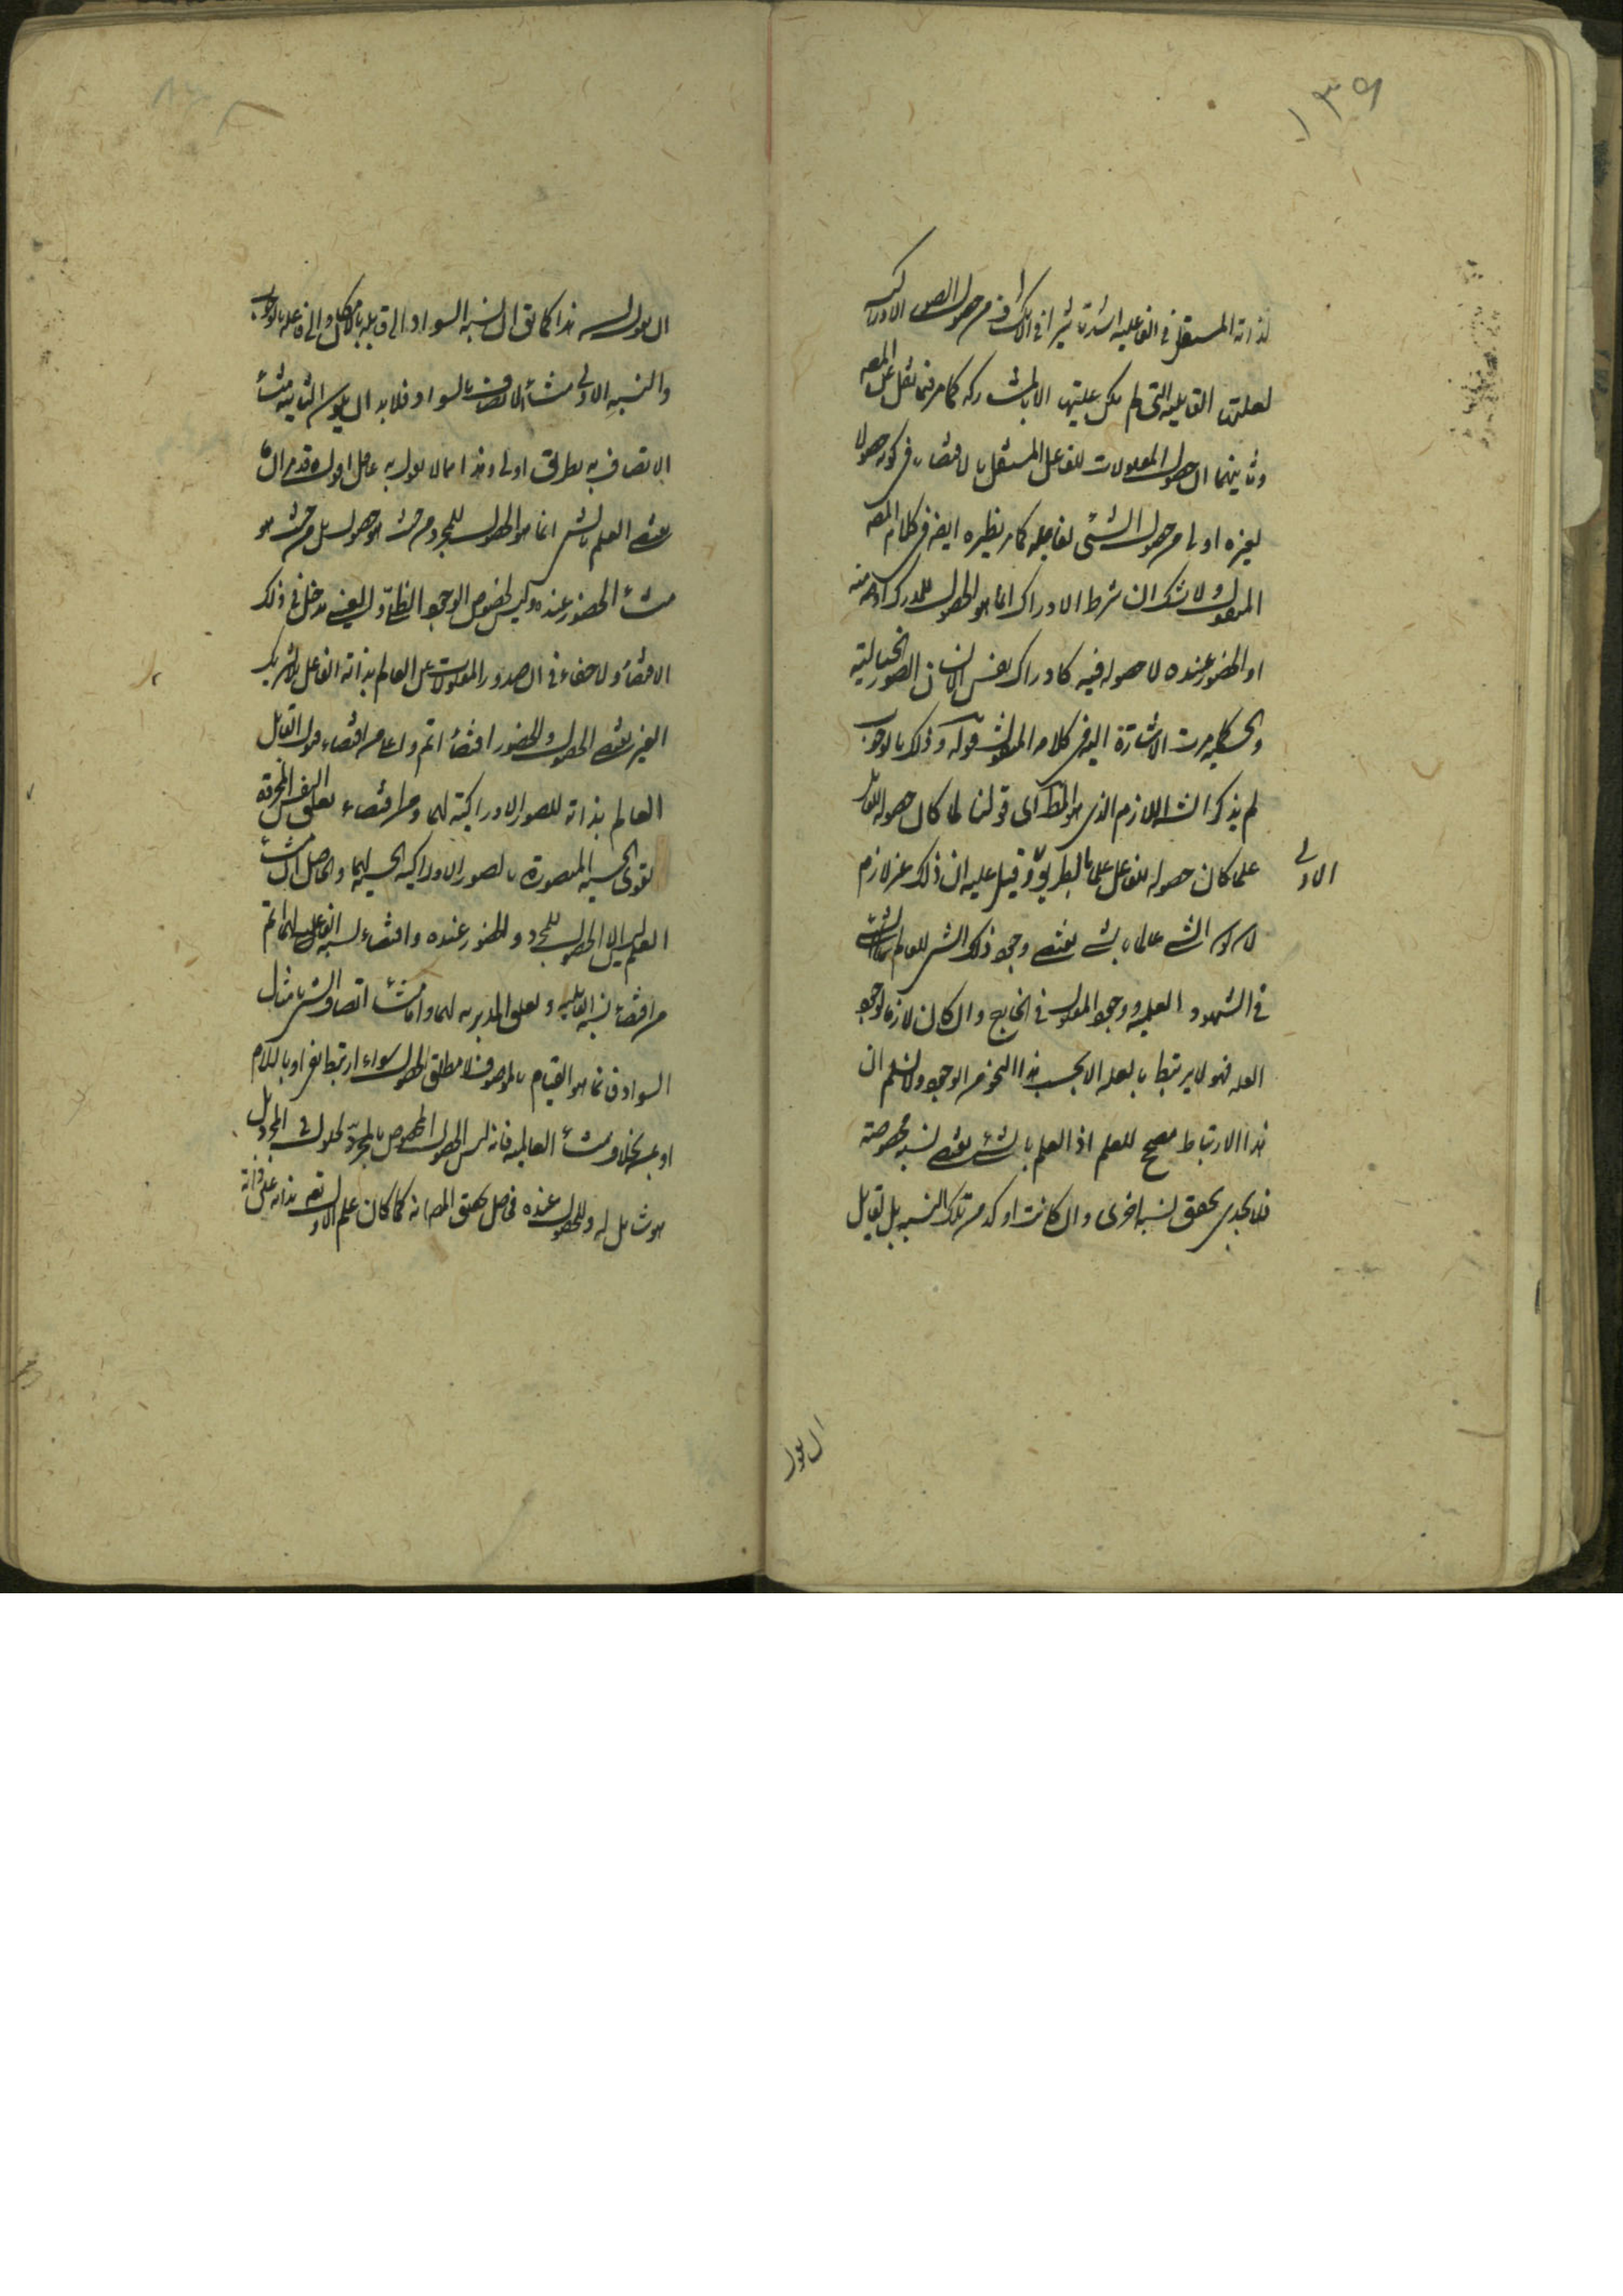 ١٣٩
لذاته المستقل في الفاعلية اشد تأثيرا في الانكشاف من حصول الصور الادراكية
لعلتها القابلية التي لم يكن عليتها الا بالمشاركة كما مر فيما نقل عن المصـ
وثانيهما ان حصول المعلولات للفاعل المستقل بالاقتضاء في كونه حصولا
لغيره اولى من حصول الشيء لقابله كما مر نظيره ايضا في كلام المصـ
المنقول ولا شك ان شرط الادراك انما هو الحصول للمدرك
او الحضور عنده لا حصوله فيه كادراك نفس الانسان الصور الخيالية
والحسية كما مرت الاشارة اليه في كلام المنقول قوله وذلك بالوجوب
لم يذكر اللازم الذي هو المط اى قولنا لما كان حصوله للقابل
علما كان حصوله للفاعل علما بالطريق وقيل عليه ان ذلك غير لازم
الاولى
لان كون الشيء عالما بالشيء يقتضي وجود ذلك الشيء للعالم
في الشهود والعلية ووجود المعلول في الخارج وان كان لازما لوجود
العلة فهو لا يرتبط بالعلة الا بحسب هذا النحو من الوجود ولا نسلم ان
هذا الارتباط مصحح للعلم اذ العلم بالشيء يقتضي نسبة مخصوصة
فلا يجدي تحقق نسبة اخرى وان كانت اوكد من تلك النسبة بل لقائل
ان يقول
ان يقول هذا كما يق ان نسبة السواد الى قابله بالامكان والى فاعله بالوجوب
والنسبة الاولى منشأ الاتصاف بالسواد فلا بد ان يكون الثانية منشأ
الاتصاف به بطريق اولى وهذا مما لا يقول به عاقل اقول قد مر ان
مقتضى العلم بالشيء انما هو الحصول للمجرد من حيث هو حصول بل من حيث هو
منشأ الحضور عنده وليس لخصوص الوجود الظلي او العيني مدخل في ذلك
الاقتضاء ولا خفاء في ان صدور المعلولات عن العالم بذاته الفاعل بلا شريك
الغير يقتضي الحصول والحضور اقتضاء اتم واعلى من اقتضاء قبول القابل
العالم بذاته للصور الادراكية لهما ومن اقتضاء تعلق النفس المجردة
بقوى الحسية المتصورة بالصور الادراكية الحسية لهما والحاصل ان منشأ
العلم ليس الا الحصول للمجرد والحضور عنده واقتضاء نسبة الفاعلية لهما اتم
من اقتضاء نسبة القابلية وتعلق المدبرية لهما واما منشأ اتصاف الشيء بامثال
السواد فانما هو القيام بالموصوف لا مطلق الحصول سواء ارتبط بفي او باللام
او بعند بخلاف منشأ العالمية فانه ليس الحصول المخصوص بالمجرد كحلول في المجرد بل
هو شامل له وللحصول عنده فحاصل تحقيق المصـ انه كما كان علم الاول تعـ بذاته عين ذاته